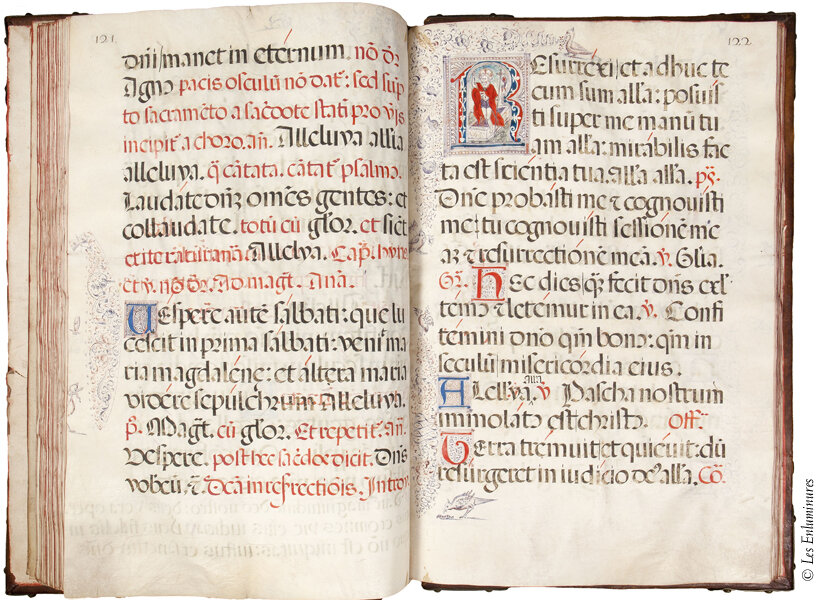 121
dñi manet in eternum. nõ dr̃
Agnꝰ pacis osculũ nõ datͬ: sed sũp
to sacramẽto a sac̃dote statĩ pro vr̃is
incipitͬ a choro. añ. Alleluya all'ia
alleluya. q̃ cãtata. cãtatͬ psalmꝰ.
Laudate dñz omẽs gentes: et
collaudate. totũ cũ gl'or. et sic̃
et iteratur añã. Alleluya. Cap.
et ỹ. nõ dr̃. Ad mag̃t. Anã.
Uespere autẽ sabbati: que lu
cescit in prima sabbati: venit ma
ria magdalene: et altera maria
videre sepulchrum Alleluya.
p̃. Mag̃t. cũ gl'or. Et repetitͬ. añ.
Vespere. post hec sac̃doe dicit. Dñs
vobcũ. ⁊. Dc̃a in refrectiõis. Introy
122
Resurrexi et adhuc te
cum sum all'a: posuis
ti super me manũ tu
am all'a: mirabilis fac
ta est scientia tua all'a all'a. pṡ.
Dñe probasti me ⁊ cognouisti
me: tu cognouisti sessionẽ me
aʒ ⁊ resurrectionẽ meã. ỹ. Gl'ia.
Gr̃. Hec dies q̃ʒ fecit dñs exl'
temꝰ ⁊ letemur in ea. ỹ. Confi
temini dño qm̃ bonꝰ: qm̃ in
seculũ misericordia eius.
Alelluya. ỹ Pascha nostrum
immolatꝰ est christꝰ. Off.
Terra tremuit et quieuit: dũ
resurgeret in iudicio deꝰ all'a. Cõ.
© Les Enluminures